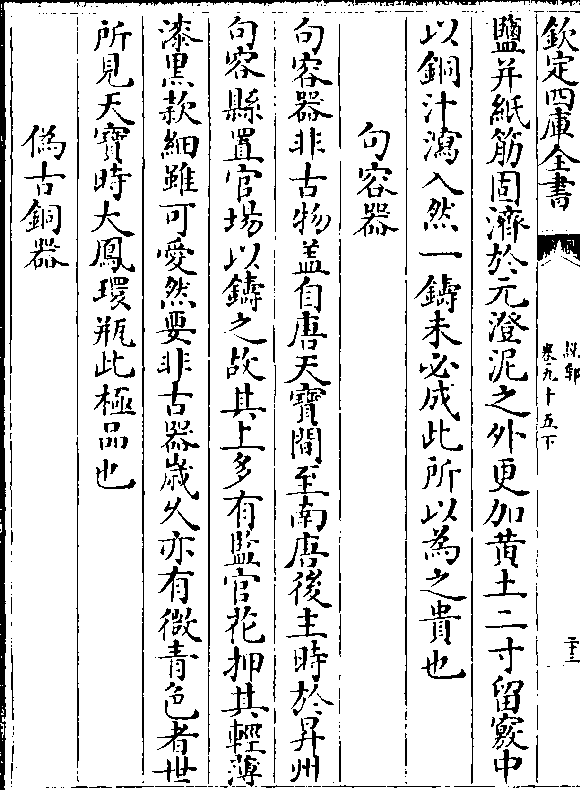 欽定四庫全書
說郛
卷九十五下
二十三
鹽并紙筋固濟於元澄泥之外更加黄土二寸留竅中
以銅汁瀉入然一鑄未必成此所以為之貴也
句容器
句容器非古物盖自唐天寳間至南唐後主時於昇州
句容縣置官場以鑄之故其上多有監官花押其輕薄
漆黒款細雖可愛然要非古器嵗久亦有微青色者世
所見天寳時大鳳環瓶此極品也
偽古銅器